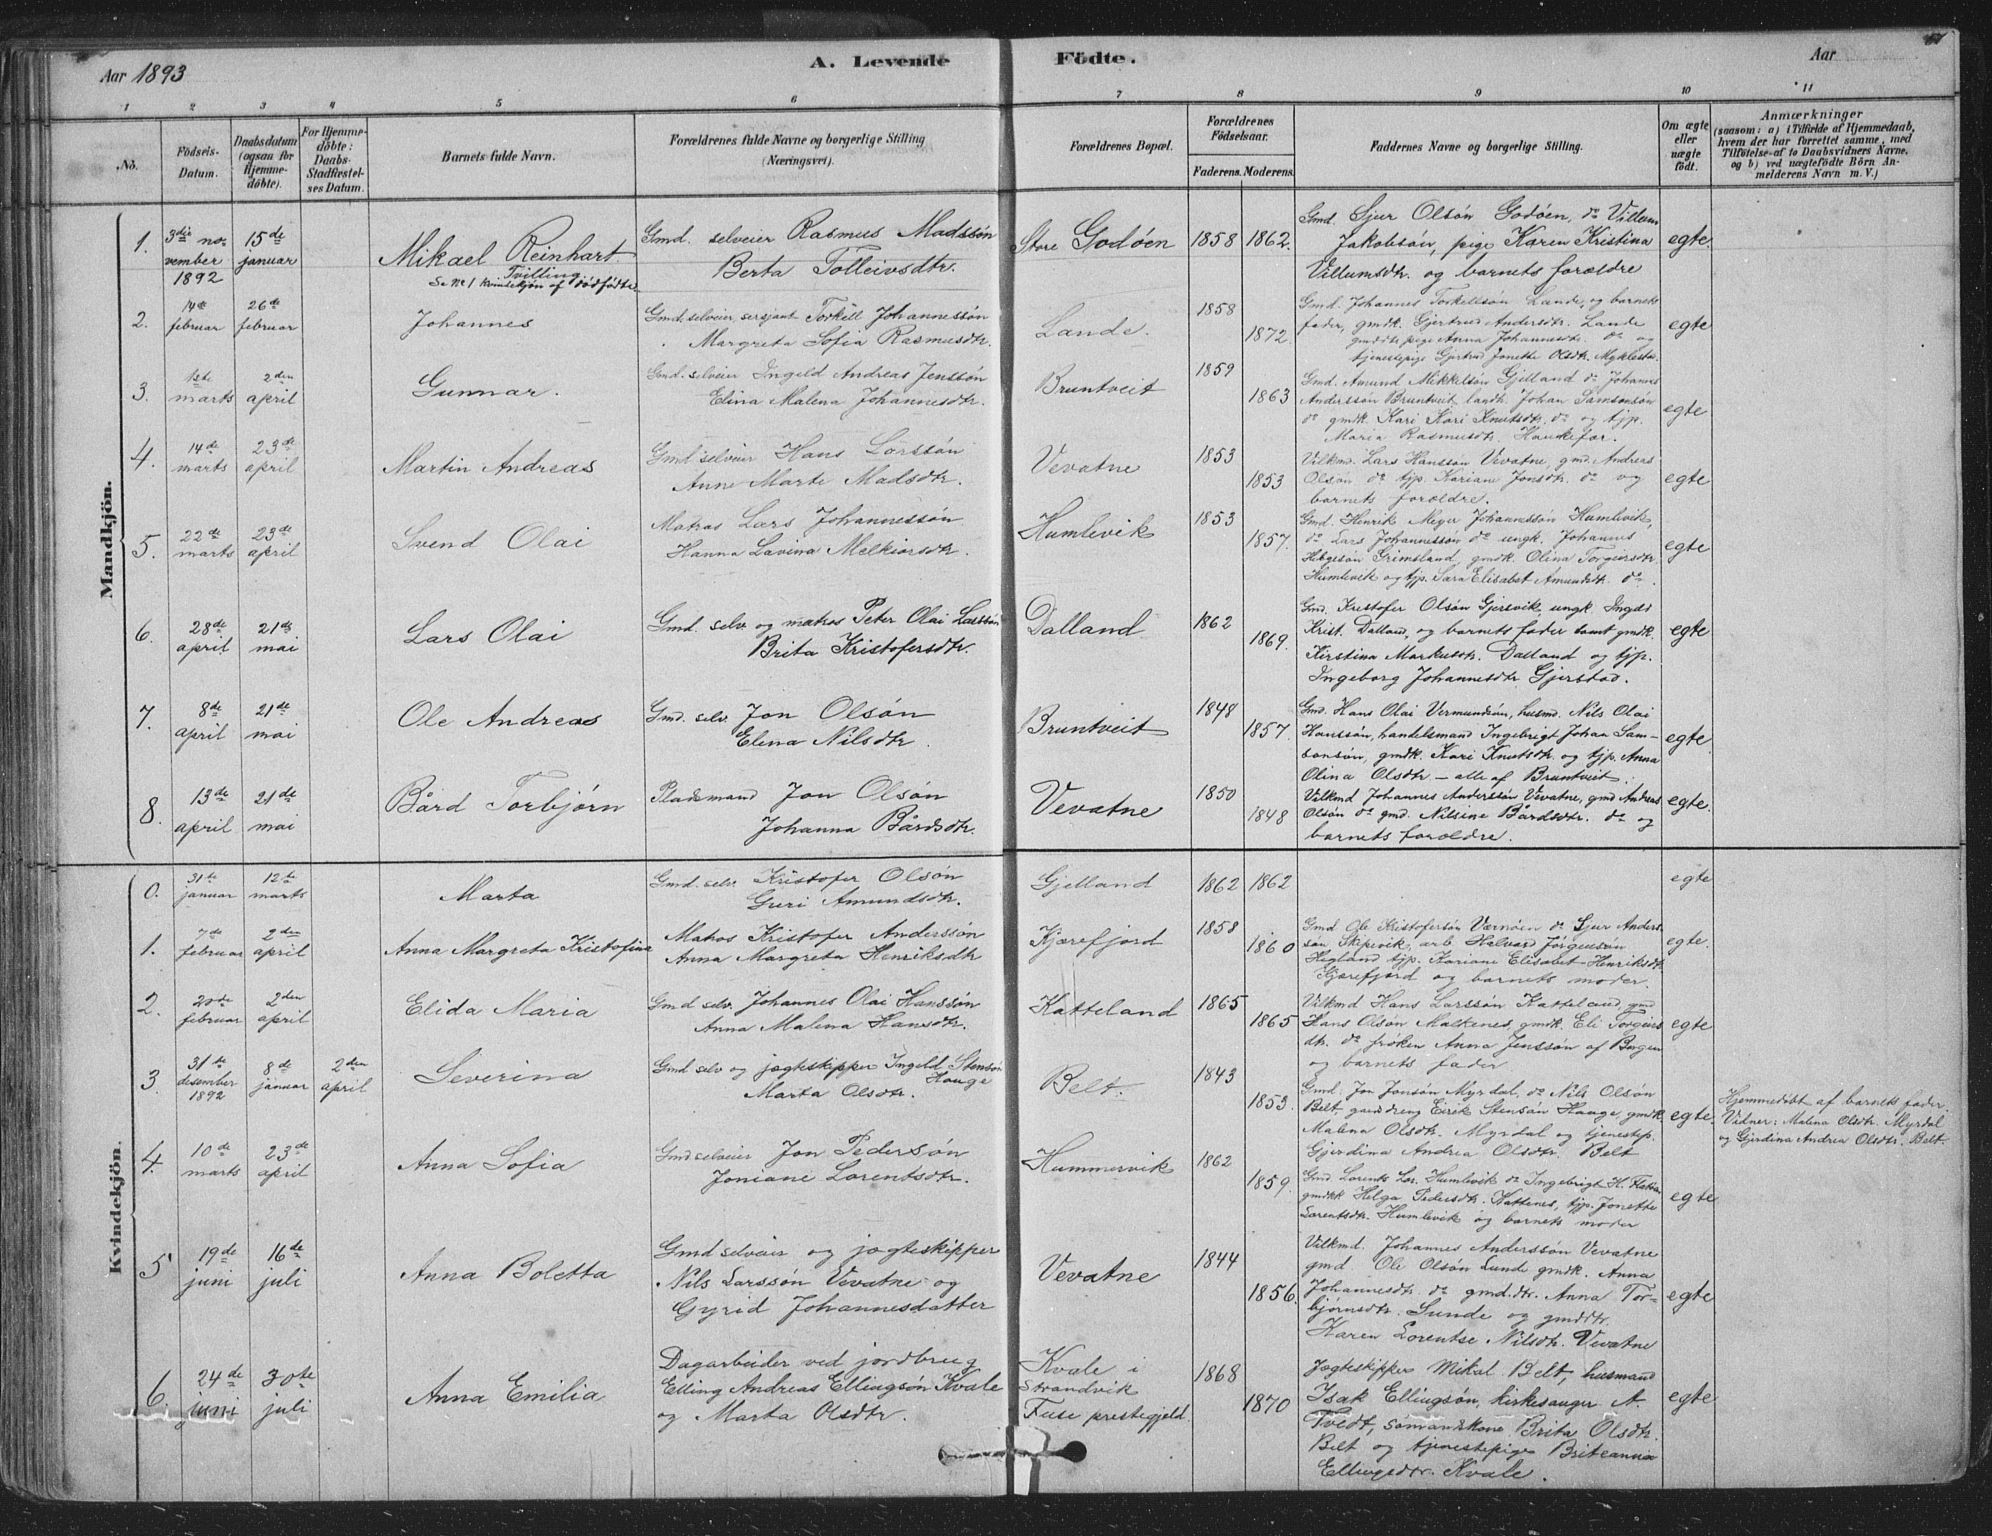 Aar 1893
A. Levende
Födte.
Aar
1 2 3 4 5 6 7 8 9 10 11
No.
Födsels-
Datum.
Daabsdatum
(ogsaa for
Hjemme-
döbte).
For Hjemme-
döbte:
Daabs-
Stadfæstel-
ses Datum.
Barnets fulde Navn.
Forældrenes fulde Navne og borgerlige Stilling
(Næringsvei).
Forældrenes Bopæl.
Forældrenes
Födselsaar.
Faderens. Moderens.
Faddernes Navne og borgerlige Stilling.
Om ægte
eller
uægte
födt.
Anmærkninger
(saasom: a) i Tilfælde af Hjemmedaab,
hvem der har forrettet samme, med
Tilföielse af to Daabsvidners Navne,
og b) ved uægtefödte Börn An-
melderens Navn m. V.)
Mandkjön.
1. 3die no-
vember
1892
15de
januar
Mikael Reinhart
Tvilling
Se No 1 kvindekjøn af dødfødte
Gmd. selveier Rasmus Madssøn
Berta Tolleivsdtr.
Store Godøen 1858 1862.
Gmd. Sjur Olsøn Godøen, do Villum
Jakobsøn, pige Karen Kristina
Villumsdtr. og barnets forældre
egte
2. 14de
februar
26de
februar
Johannes
Gmd. selveier, sersjant Torkill Johannessøn
Margreta Sofia Rasmusdtr.
Lande. 1858 1872.
Gmd. Johannes Torkellsøn Lande, og barnets
fader, gmdk. Gjertrud Andersdtr. Lande
gmddtr. pige Anna Johannesdtr. do og
tjenestepige Gjertrud Jonette Olsdtr. Myklestv.
egte
3. 1ste
marts
2den
april
Gunnar.
Gmd. selveier Ingeld Andreas Jenssøn
Elina Malena Johannesdtr.
Bruntveit 1859 1863
Gmd. Amund Mikkelsøn Gjelland do Johannes
Anderssøn Bruntveit landh. Johan Samsonsøn
do gmdk. Kari Knutsdtr. do og tjp.
Maria Rasmusdtr.
egte
4. 14de
marts
23de
april
Martin Andreas
Gmd selveier Hans Larssøn
Anne Marte Madsdtr.
Vevatne 1853 1853
Vilkmd. Lars Hanssøn Vevatne, gmd. Andreas
Olsøn do tjp. Kariane Jonsdtr. do og
barnets forældre.
egte
5. 22de
marts
23de
april
Svend Olai
Matros Lars Johannessøn
Hanna Lavina Melkiorsdtr.
Humlevik 1853 1857.
Gmd. Henrik Meyer Johannessøn Humlevik,
do Lars Johannessøn do ungk. Johannes
Helgesøn Grimsland, gmdk. Olina Torgersdtr
Humlevik og tjp. Sara Elisabet Amundsdtr. do.
egte
6. 28de
april
21de
mai
Lars Olai
Gmd. selv. og matros Peter Olai Larssøn
Brita Kristofersdtr.
Dalland 1862 1869.
Gmd. Kristofer Olsøn Gjersvik, ungk. Ingdi
Krist. Dalland, og barnets fader samt gmdk.
Kirstina Markusdtr. Dalland og tjp.
Ingeborg Johannesdtr Gjerstad.
egte
7. 8de
april
21de
mai
Ole Andreas
Gmd. selv. Jon Olsøn
Elena Nilsdtr.
Bruntveit 1848 1857.
Gmd. Hans Olai Vermundsøn, husmd. Nils Olai
Hanssøn, handelsmand Ingebrigt Johan Sam-
sonsøn, gmdk. Kari Knutsdtr og tjp. Anna
Olina Olsdtr – alle af Bruntveit.
egte
8. 13de
april
21de
mai
Bård Torbjørn
Pladsmand Jon Olsøn
Johanna Bårdsdtr.
Vevatne 1850 1848
Vilkmd Johannes Anderssøn Vevatne, gmd Andreas
Olsøn do gmd. Nilsine Bårdsdtr. do og
barnets forældre.
egte.
Kvindekjön.
0. 31te
januar
12te
marts
Marta
Gmd. selv. Kristofer Olsøn
Guri Amundsdtr.
Gjelland 1862 1862
egte
1. 7de
februar
2den
april
Anna Margreta Kristofina
Matros Kristofer Anderssøn
Anna Margreta Henriksdtr
Kjærefjord 1858 1860
Gmd Ole Kristofersøn Værnøen do Sjur Anders-
søn Skipevik, arb. Halvard Jørgensøn
Hegland tjp. Kariane Elisabet Henriksdtr.
Kjærefjord og barnets moder.
egte.
2. 20de
februar
2den
april
Elida Maria
Gmd selv. Johannes Olai Hanssøn
Anna Malena Hansdtr.
Katteland 1865 1865
Vilkmd Hans Larssøn Katteland, gmd
Hans Olsøn Malkenes, gmdk. Eli Torgers
dtr. do frøken Anna Jenssøn af Bergen
og barnets fader
egte
3. 31te
desember
1892
8de
januar
2den
april
Severina
Gmd selv og jagteskipper Ingeld Stensøn
Hauge
Marta Olsdtr.
Belt. 1843 1853.
Gmd. Jon Jonsøn Myrdal, do Nils Olsøn
Belt, gmddreng Eirik Stensøn Hauge, gmdk.
Malena Olsdtr. Myrdal og tjenestep.
Gjerdina Andrea Olsdtr. Belt
egte.
Hjemmedøbt af barnets fader.
Vidner: Malena Olsdtr. Myrdal
og Gjerdina Andrea Olsdtr. Belt.
4. 10de
marts
23de
april
Anna Sofia
Gmd selveier Jon Pedersøn
Joniane Lorentsdtr.
Hummervik 1862 1859.
Gmd. Lorents Lar. Humlevik do Ingebrigt H.
gmdk Helga Pedersdtr. Kattenes, tjp. Jonette
Lorentsdtr. Humlevik og barnets moder
egte
5 19de
juni
16de
juli
Anna Boletta
Gmd selveier og jagteskipper
Nils Larssøn Vevatne og
Gyrid Johannesdatter
Vevatne 1844 1856.
Vilkmd. Johannes Anderssøn Vevatne
gmd. Ole Olsøn Lund gmdk. Anna
Johannesdtr. do gmd.dtr. Anna Tor-
bjørnsdtr. Sunde og gmddtr.
Karen Lorentse Nilsdtr. Vevatne
egte
6. 24de
juni
30te
juli
Anna Emilia
Dagarbeider ved jordbrug
Elling Andreas Ellingsøn Kvale
og Marta Olsdtr.
Kvale i
Strandvik
Fuse prestegjeld. 1868 1870
Jagteskipper Mikal Belt, husmand
Isak Ellingsøn, kirkesanger A.
Tvedt, sømandskone Brita Olsdtr.
Belt og tjenestepige Briteanna
Ellingsdtr. Kvale.
egte